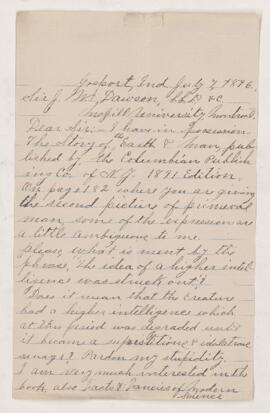 Gosport, Ind July 7, 1896.
Sir J. Wm Dawson, LL.D. &c.
McGill University, Montreal.
Dear Sir:- I have in possession
"The Story of the Earth & Man, pub
lished by the Columbian Publish
ing Co. of N.Y. 1891 Edition.
On page 182 where you are giving
the second picture of primeval
man, some of the expression are
a little ambiguous to me.
please, what is ment by the
phrase, "The idea of a higher intel-
ligence was struck out?"
Does it mean that the creature
had a higher intelligence which
at this period was degraded until
it became a superstitious & idolatrous
savage? Pardon my stupidity.
I am very much interested in the
book, also Facts & Fancies of Modern
Science